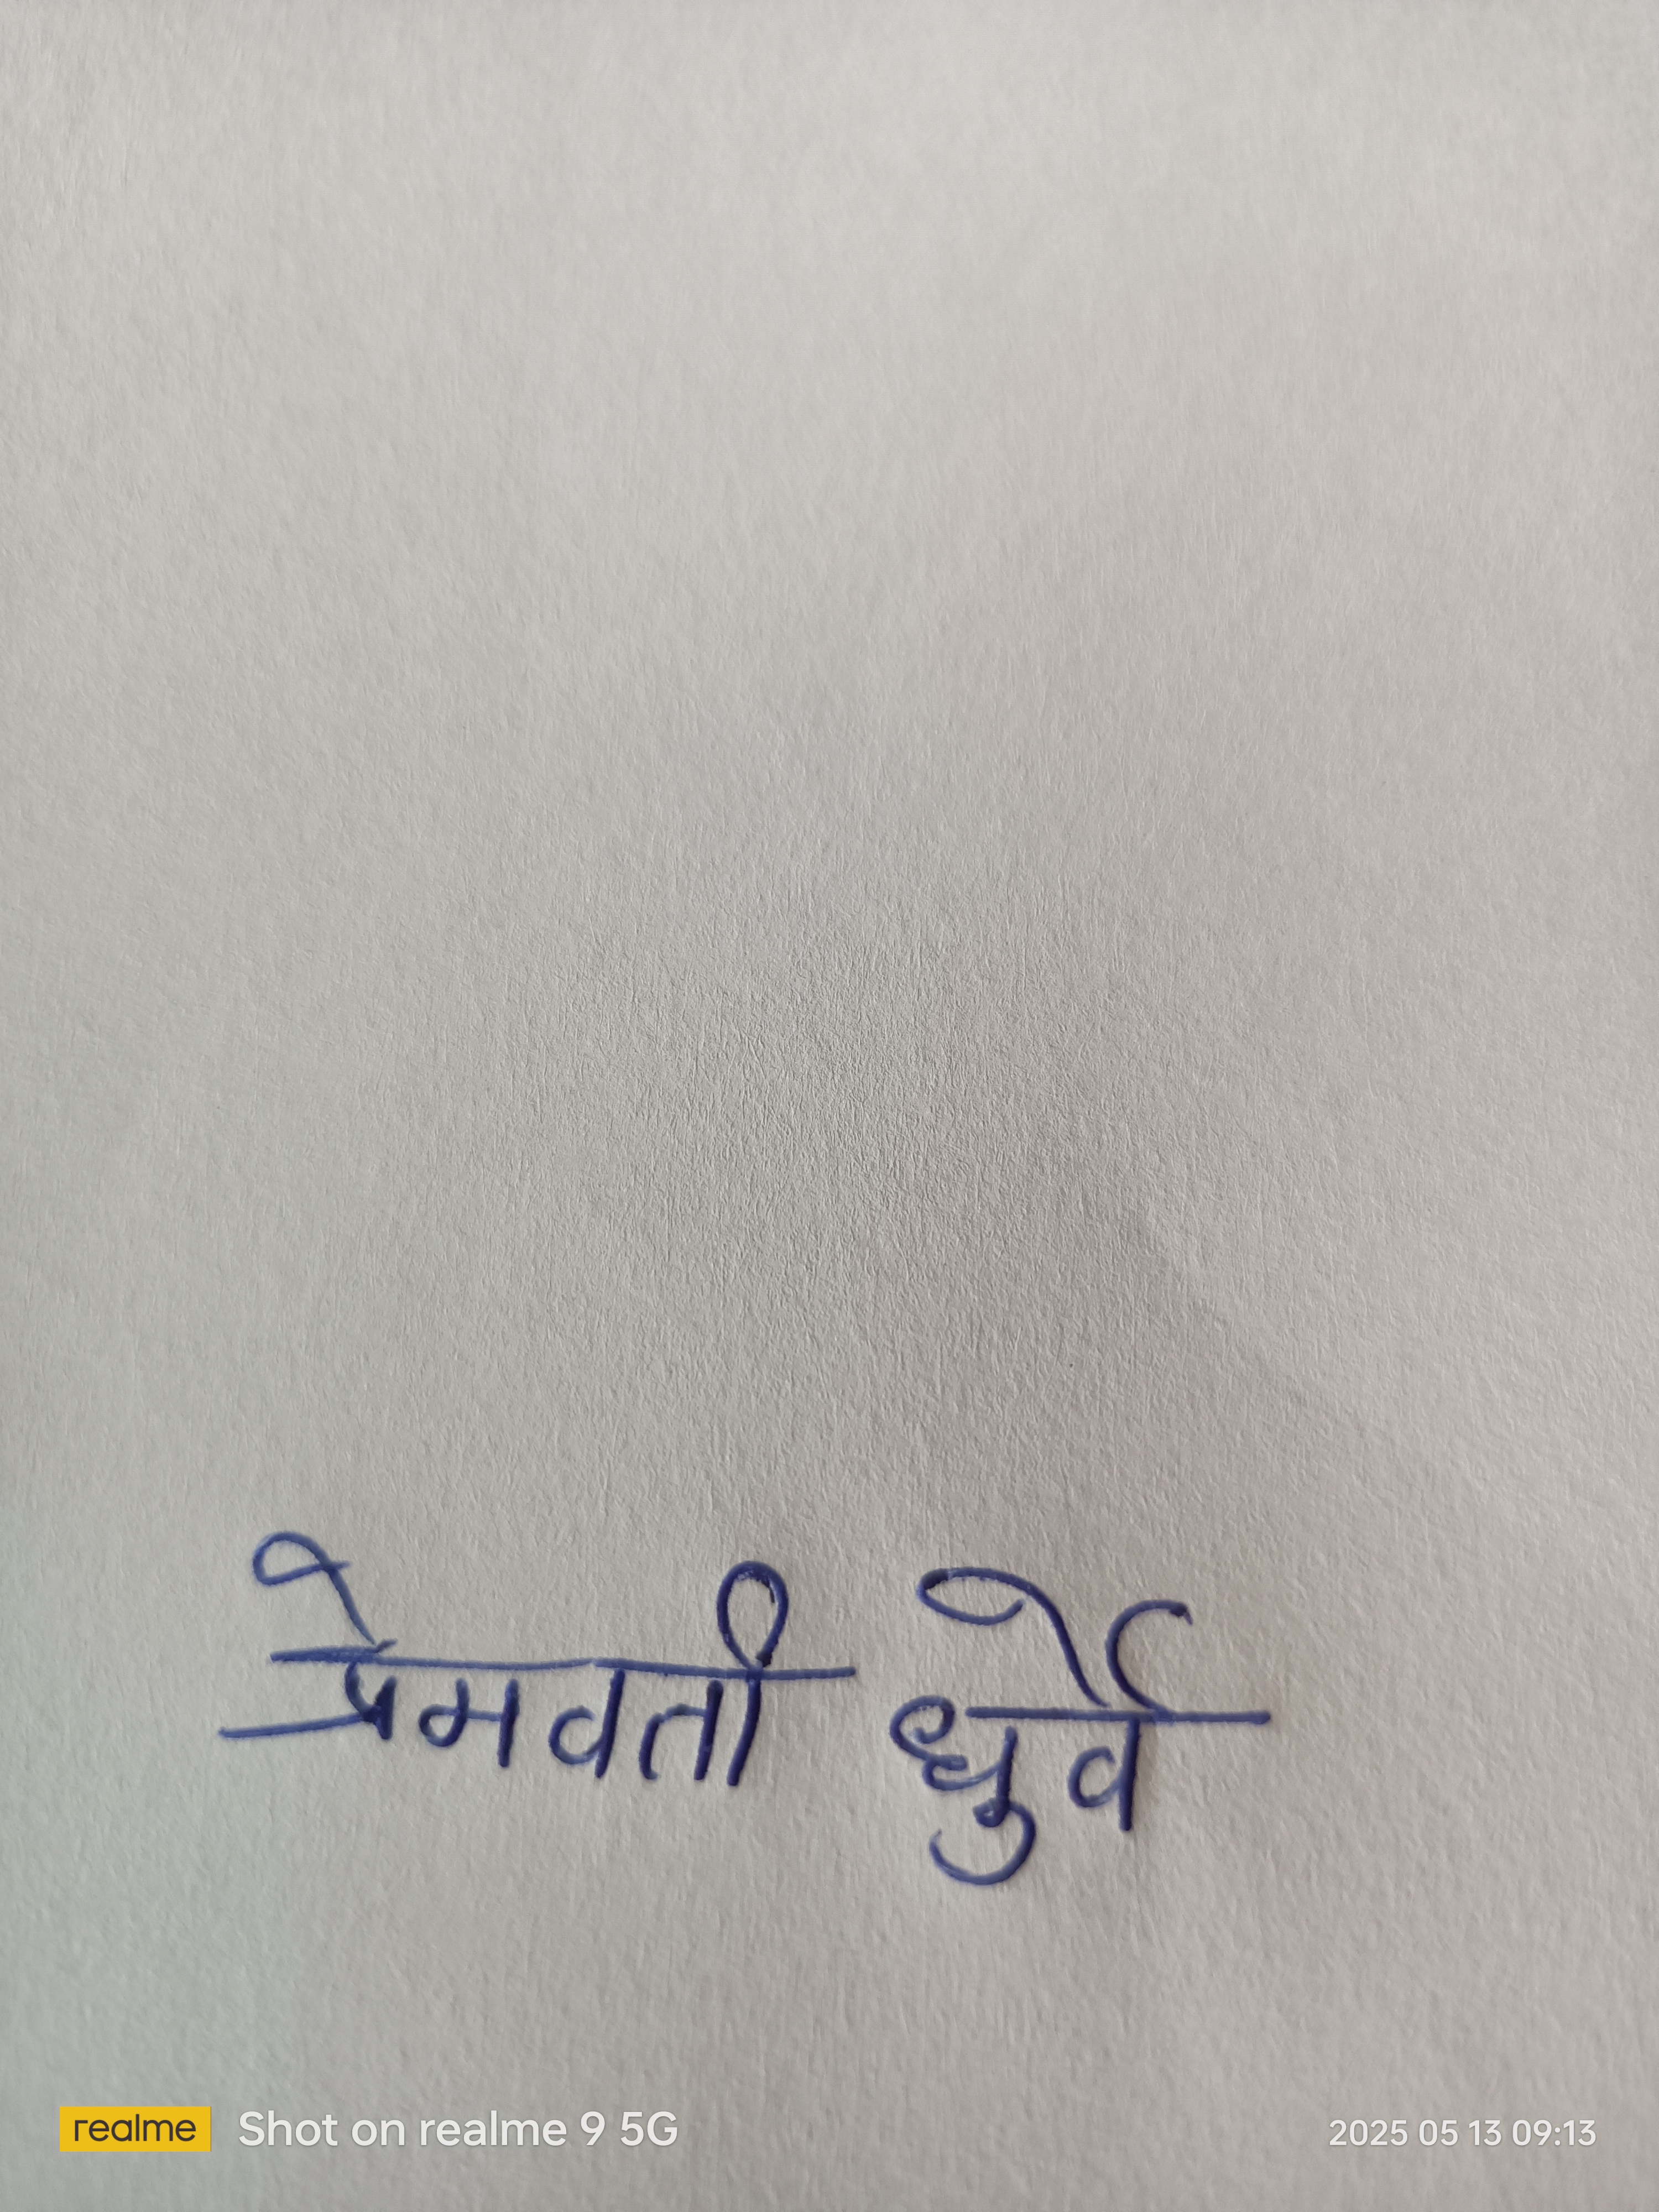 प्रेमवती धुर्वे
realme Shot on realme 9 5G 2025 05 13 09:13